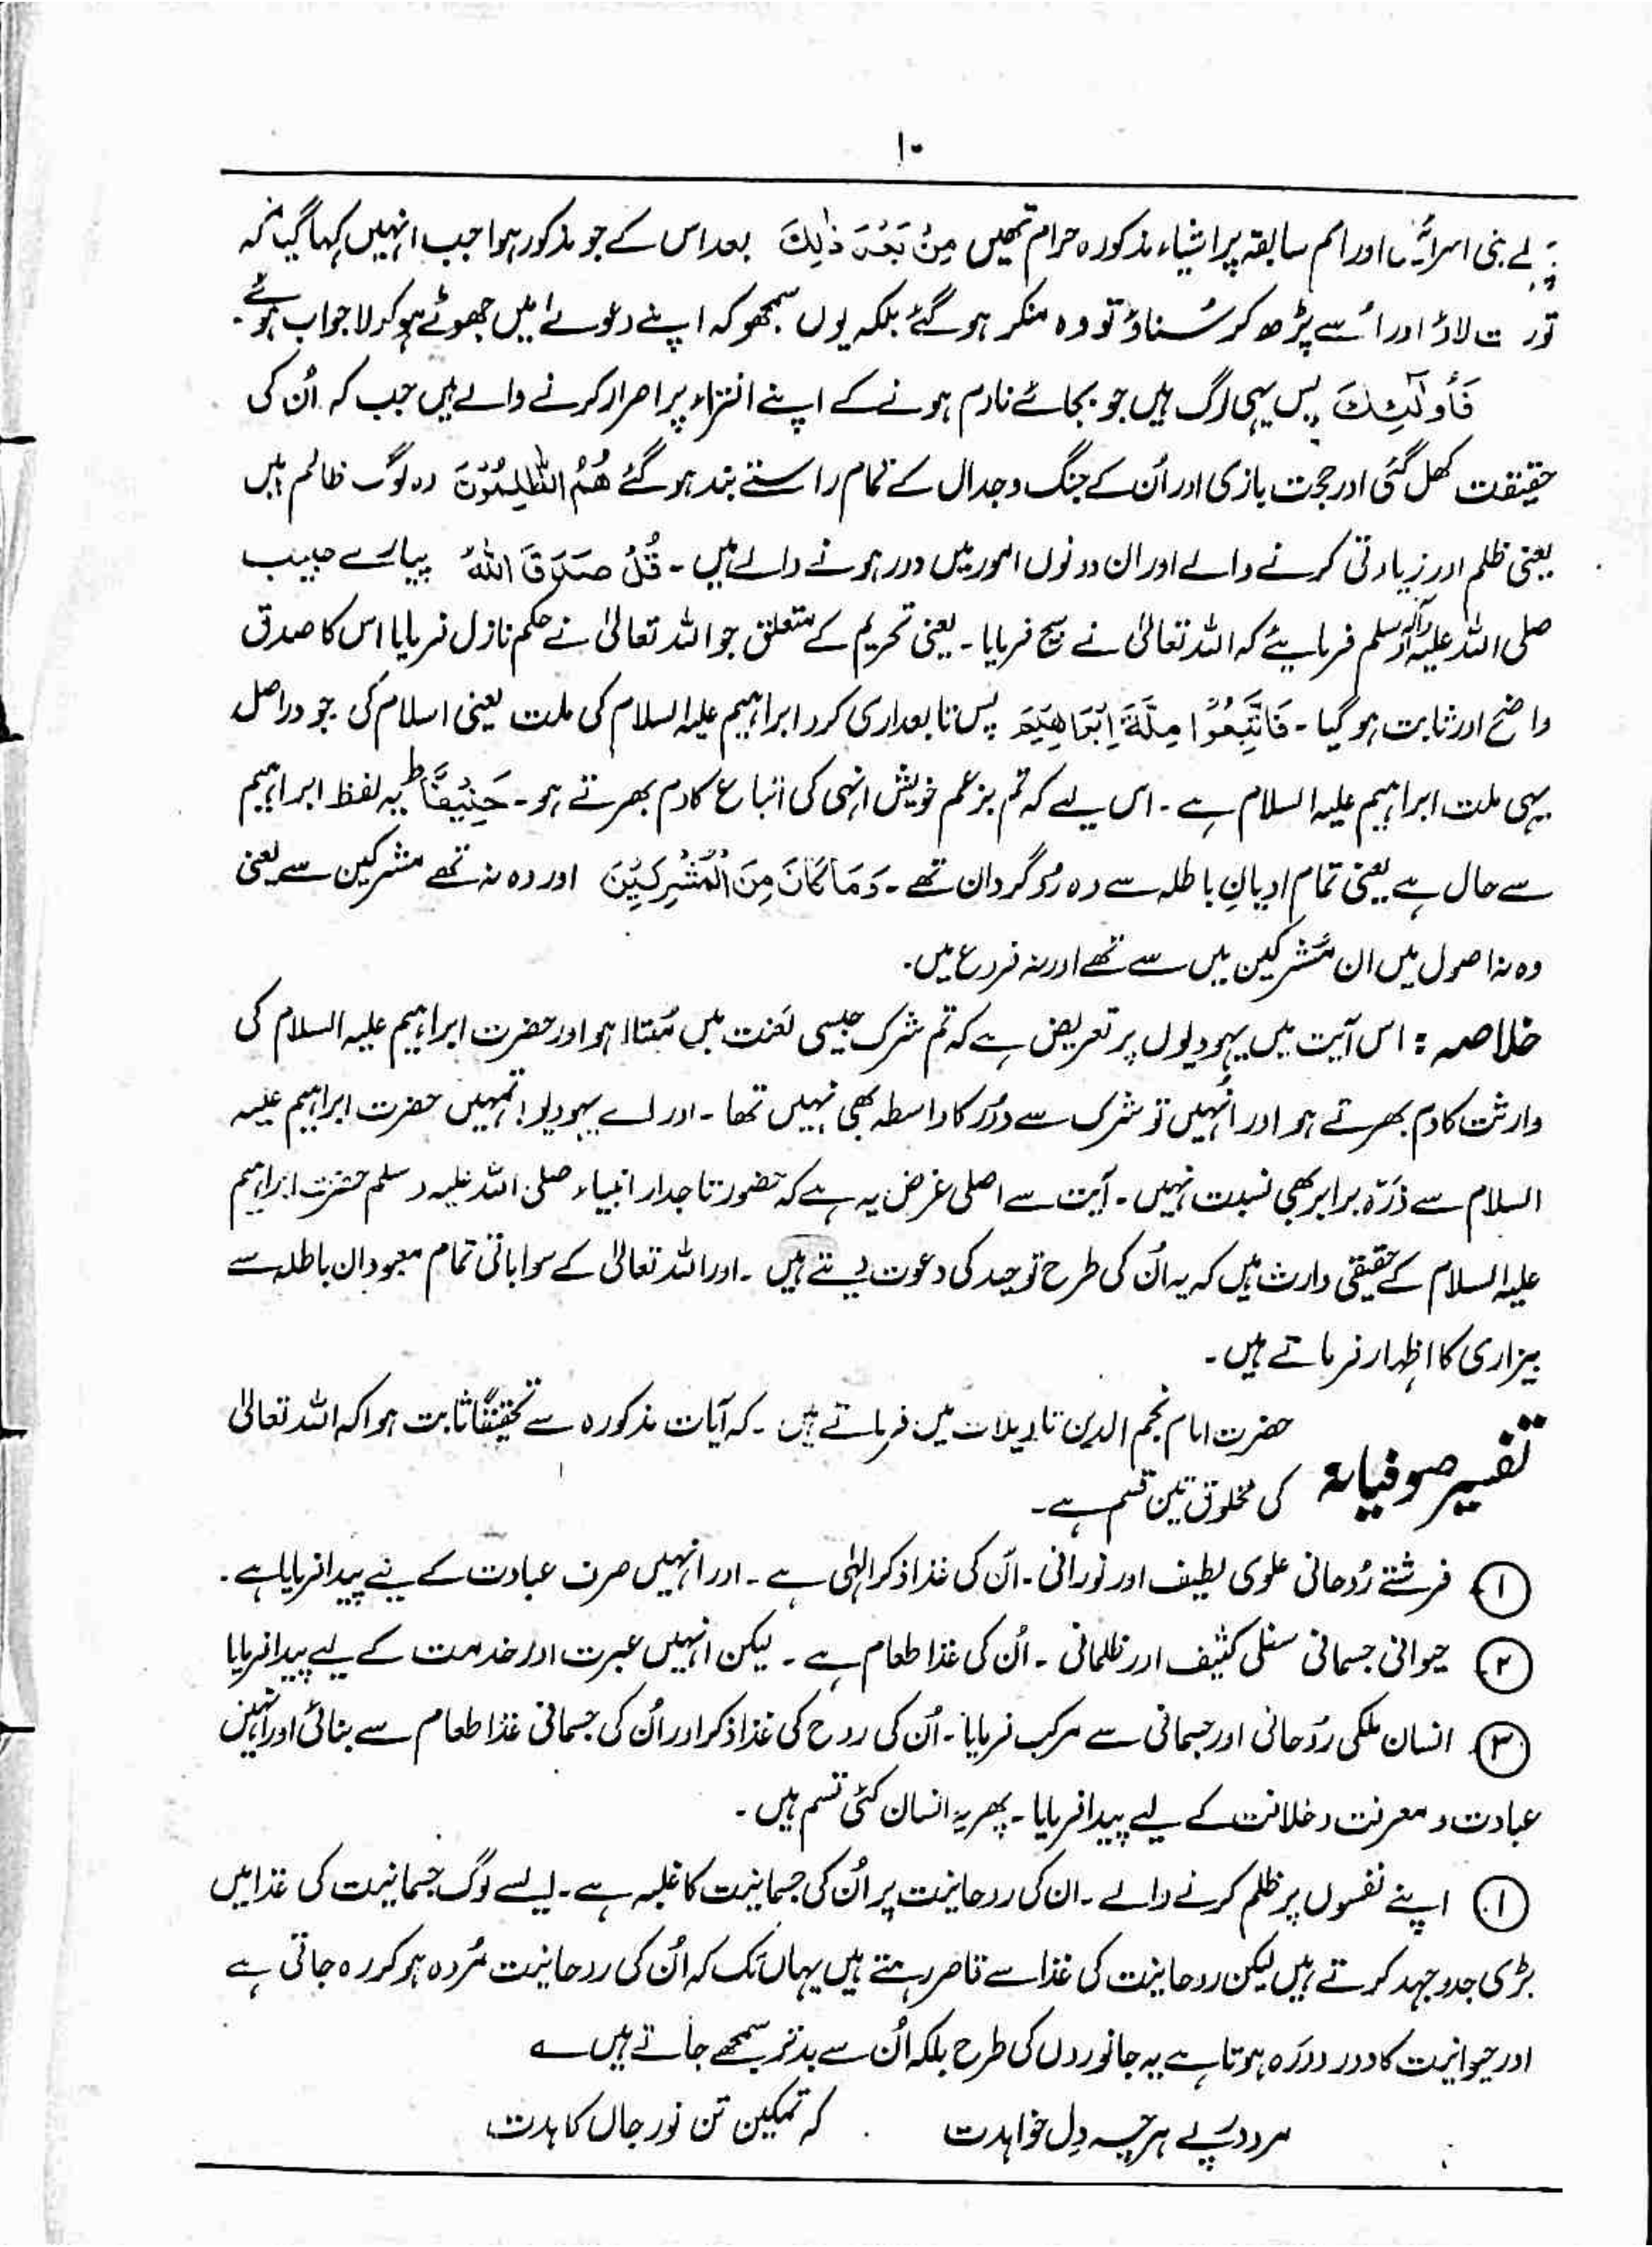 ۱۰
پہلے بنی اسرائیل اور امم سابقہ پر اشیاء مذکورہ حرام تھیں مِنْ بَعْدِ ذٰلِكَ بعد اس کے جو مذکور ہوا جب انہیں کہا گیا کہ
تورت لاؤ اور اُسے پڑھ کر سُناؤ تو وہ منکر ہو گئے بلکہ یوں سمجھو کہ اپنے دعوے میں جھوٹے ہو کر لاجواب ہوئے۔
فَأُولٰٓئِكَ پس یہی لوگ ہیں جو بجائے نادم ہونے کے اپنے افتراء پر اصرار کرنے والے ہیں جب کہ اُن کی
حقیقت کھل گئی اور حجت بازی اور اُن کے جنگ و جدال کے تمام راستے بند ہو گئے هُمُ الظّٰلِمُوْنَ وہ لوگ ظالم ہیں
یعنی ظلم اور زیادتی کرنے والے اور ان دونوں امور میں دور ہونے والے ہیں۔ قُلْ صَدَقَ اللّٰهُ پیارے حبیب
صلی اللہ علیہ وآلہٖ وسلم فرمایئے کہ اللہ تعالیٰ نے سچ فرمایا۔ یعنی تحریم کے متعلق جو اللہ تعالیٰ نے حکم نازل فرمایا اس کا صدق
واضح اور ثابت ہو گیا۔ فَاتَّبِعُوْا مِلَّةَ اِبْرَاهِيْمَ پس تابعداری کرو ابراہیم علیہ السلام کی ملت یعنی اسلام کی جو دراصل
یہی ملت ابراہیم علیہ السلام ہے۔ اس لیے کہ تم بزعم خویش انہی کی اتباع کا دم بھرتے ہو۔ حَنِيْفًا ط یہ لفظ ابراہیم
سے حال ہے یعنی تمام ادیانِ باطلہ سے وہ رُو گردان تھے۔ وَمَا كَانَ مِنَ الْمُشْرِكِيْنَ اور وہ نہ تھے مشرکین سے یعنی
وہ نہ اصول میں ان مُشرکین میں سے تھے اور نہ فروع میں۔
خلاصہ : اس آیت میں یہودیوں پر تعریض ہے کہ تم شرک جیسی لعنت میں مُبتلا ہو اور حضرت ابراہیم علیہ السلام کی
وارثت کا دم بھرتے ہو اور اُنہیں تو شرک سے دُور کا واسطہ بھی نہیں تھا۔ اور اے یہودیو! تمہیں حضرت ابراہیم علیہ
السلام سے ذرّہ برابر بھی نسبت نہیں۔ آیت سے اصلی غرض یہ ہے کہ حضور تاجدار انبیاء صلی اللہ علیہ وسلم حضرت ابراہیم
علیہ السلام کے حقیقی وارث ہیں کہ یہ اُن کی طرح توحید کی دعوت دیتے ہیں۔ اور اللہ تعالیٰ کے سوا باقی تمام معبودان باطلہ سے
بیزاری کا اظہار فرماتے ہیں۔
تفسیر صوفیانہ حضرت امام نجم الدین تاویلات میں فرماتے ہیں۔ کہ آیات مذکورہ سے تحقیقًا ثابت ہوا کہ اللہ تعالیٰ
کی مخلوق تین قسم ہے۔
① فرشتے رُوحانی علوی لطیف اور نورانی۔ اُن کی غذا ذکر الٰہی ہے۔ اور انہیں صرف عبادت کے لیے پیدا فرمایا ہے۔
② حیوانی جسمانی سفلی کثیف اور ظلمانی۔ اُن کی غذا طعام ہے۔ لیکن انہیں عبرت اور خدمت کے لیے پیدا فرمایا
③ انسان ملکی رُوحانی اور جسمانی سے مرکب فرمایا۔ اُن کی روح کی غذا ذکر اور اُن کی جسمانی غذا طعام سے بنائی اور انہیں
عبادت و معرفت و خلافت کے لیے پیدا فرمایا۔ پھر یہ انسان کئی قسم ہیں۔
① اپنے نفسوں پر ظلم کرنے والے۔ ان کی روحانیت پر اُن کی جسمانیت کا غلبہ ہے۔ ایسے لوگ جسمانیت کی غذا میں
بڑی جدوجہد کرتے ہیں لیکن روحانیت کی غذا سے قاصر رہتے ہیں یہاں تک کہ اُن کی روحانیت مُردہ ہو کر رہ جاتی ہے
اور حیوانیت کا دور دورہ ہوتا ہے یہ جانوروں کی طرح بلکہ اُن سے بدتر سمجھے جاتے ہیں ؎
مرو در پے ہرچہ دِل خواہدت کہ تمکین تن نور جاں کاہدت